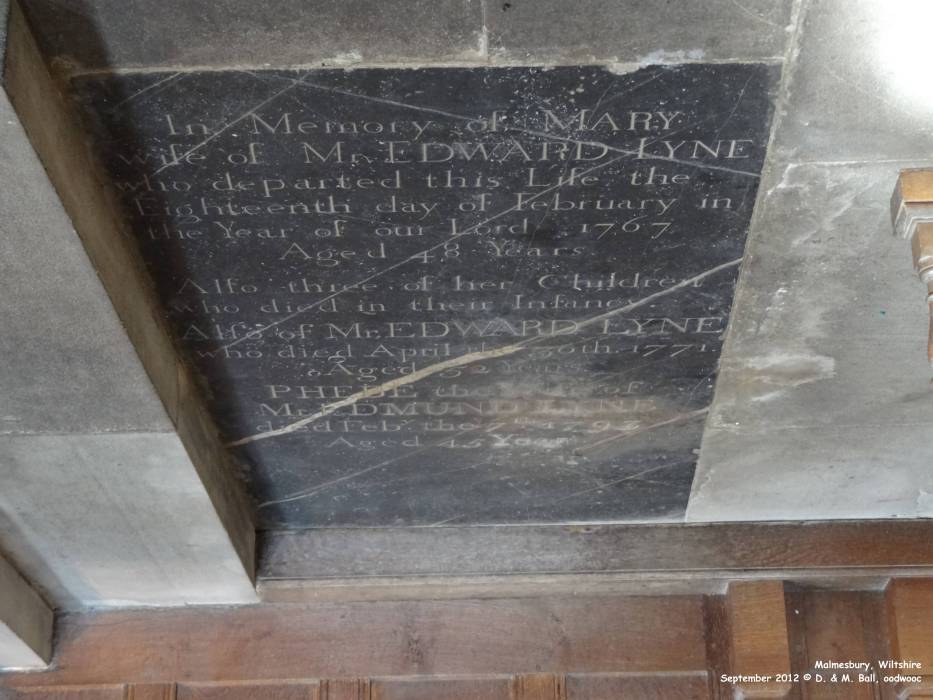 In Memory of MARY
wife of Mr. EDWARD LYNE
who departed this Life the
Eighteenth day of February in
the Year of our Lord 1767
Aged 48 Years
Alſo three of her Children
who died in their Infancy
Alſo of Mr. EDWARD LYNE
who died April the 30th. 1771.
Aged 52 Years
PHEBE the of
Mr. EDMUND LYNE
died Feby. the 7th 1797
Aged 45 Years
Malmesbury, Wiltshire
September 2012 © D. & M. Ball, oodwooc